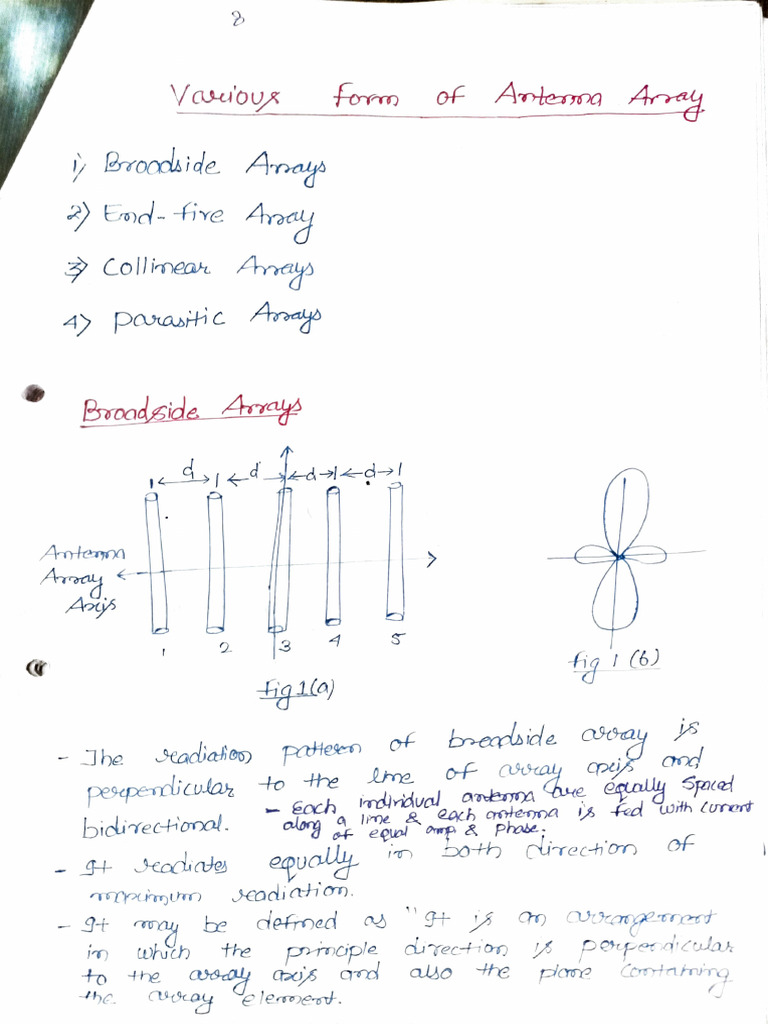 8
Various form of Antenna Array
1) Broadside Arrays
2) End-fire Array
3) Collinear Arrays
4) Parasitic Arrays
Broadside Arrays
d d d d
Antenna
Array
Axis
1 2 3 4 5
fig 1(a)
fig 1 (b)
- The radiation pattern of broadside array is
perpendicular to the line of array axis and
bidirectional.
- Each individual antenna are equally spaced
along a line & each antenna is fed with current
of equal amp & phase.
- It radiates equally in both direction of
maximum radiation.
- It may be defined as "It is an arrangement
in which the principle direction is perpendicular
to the array axis and also the plane containing
the array element.